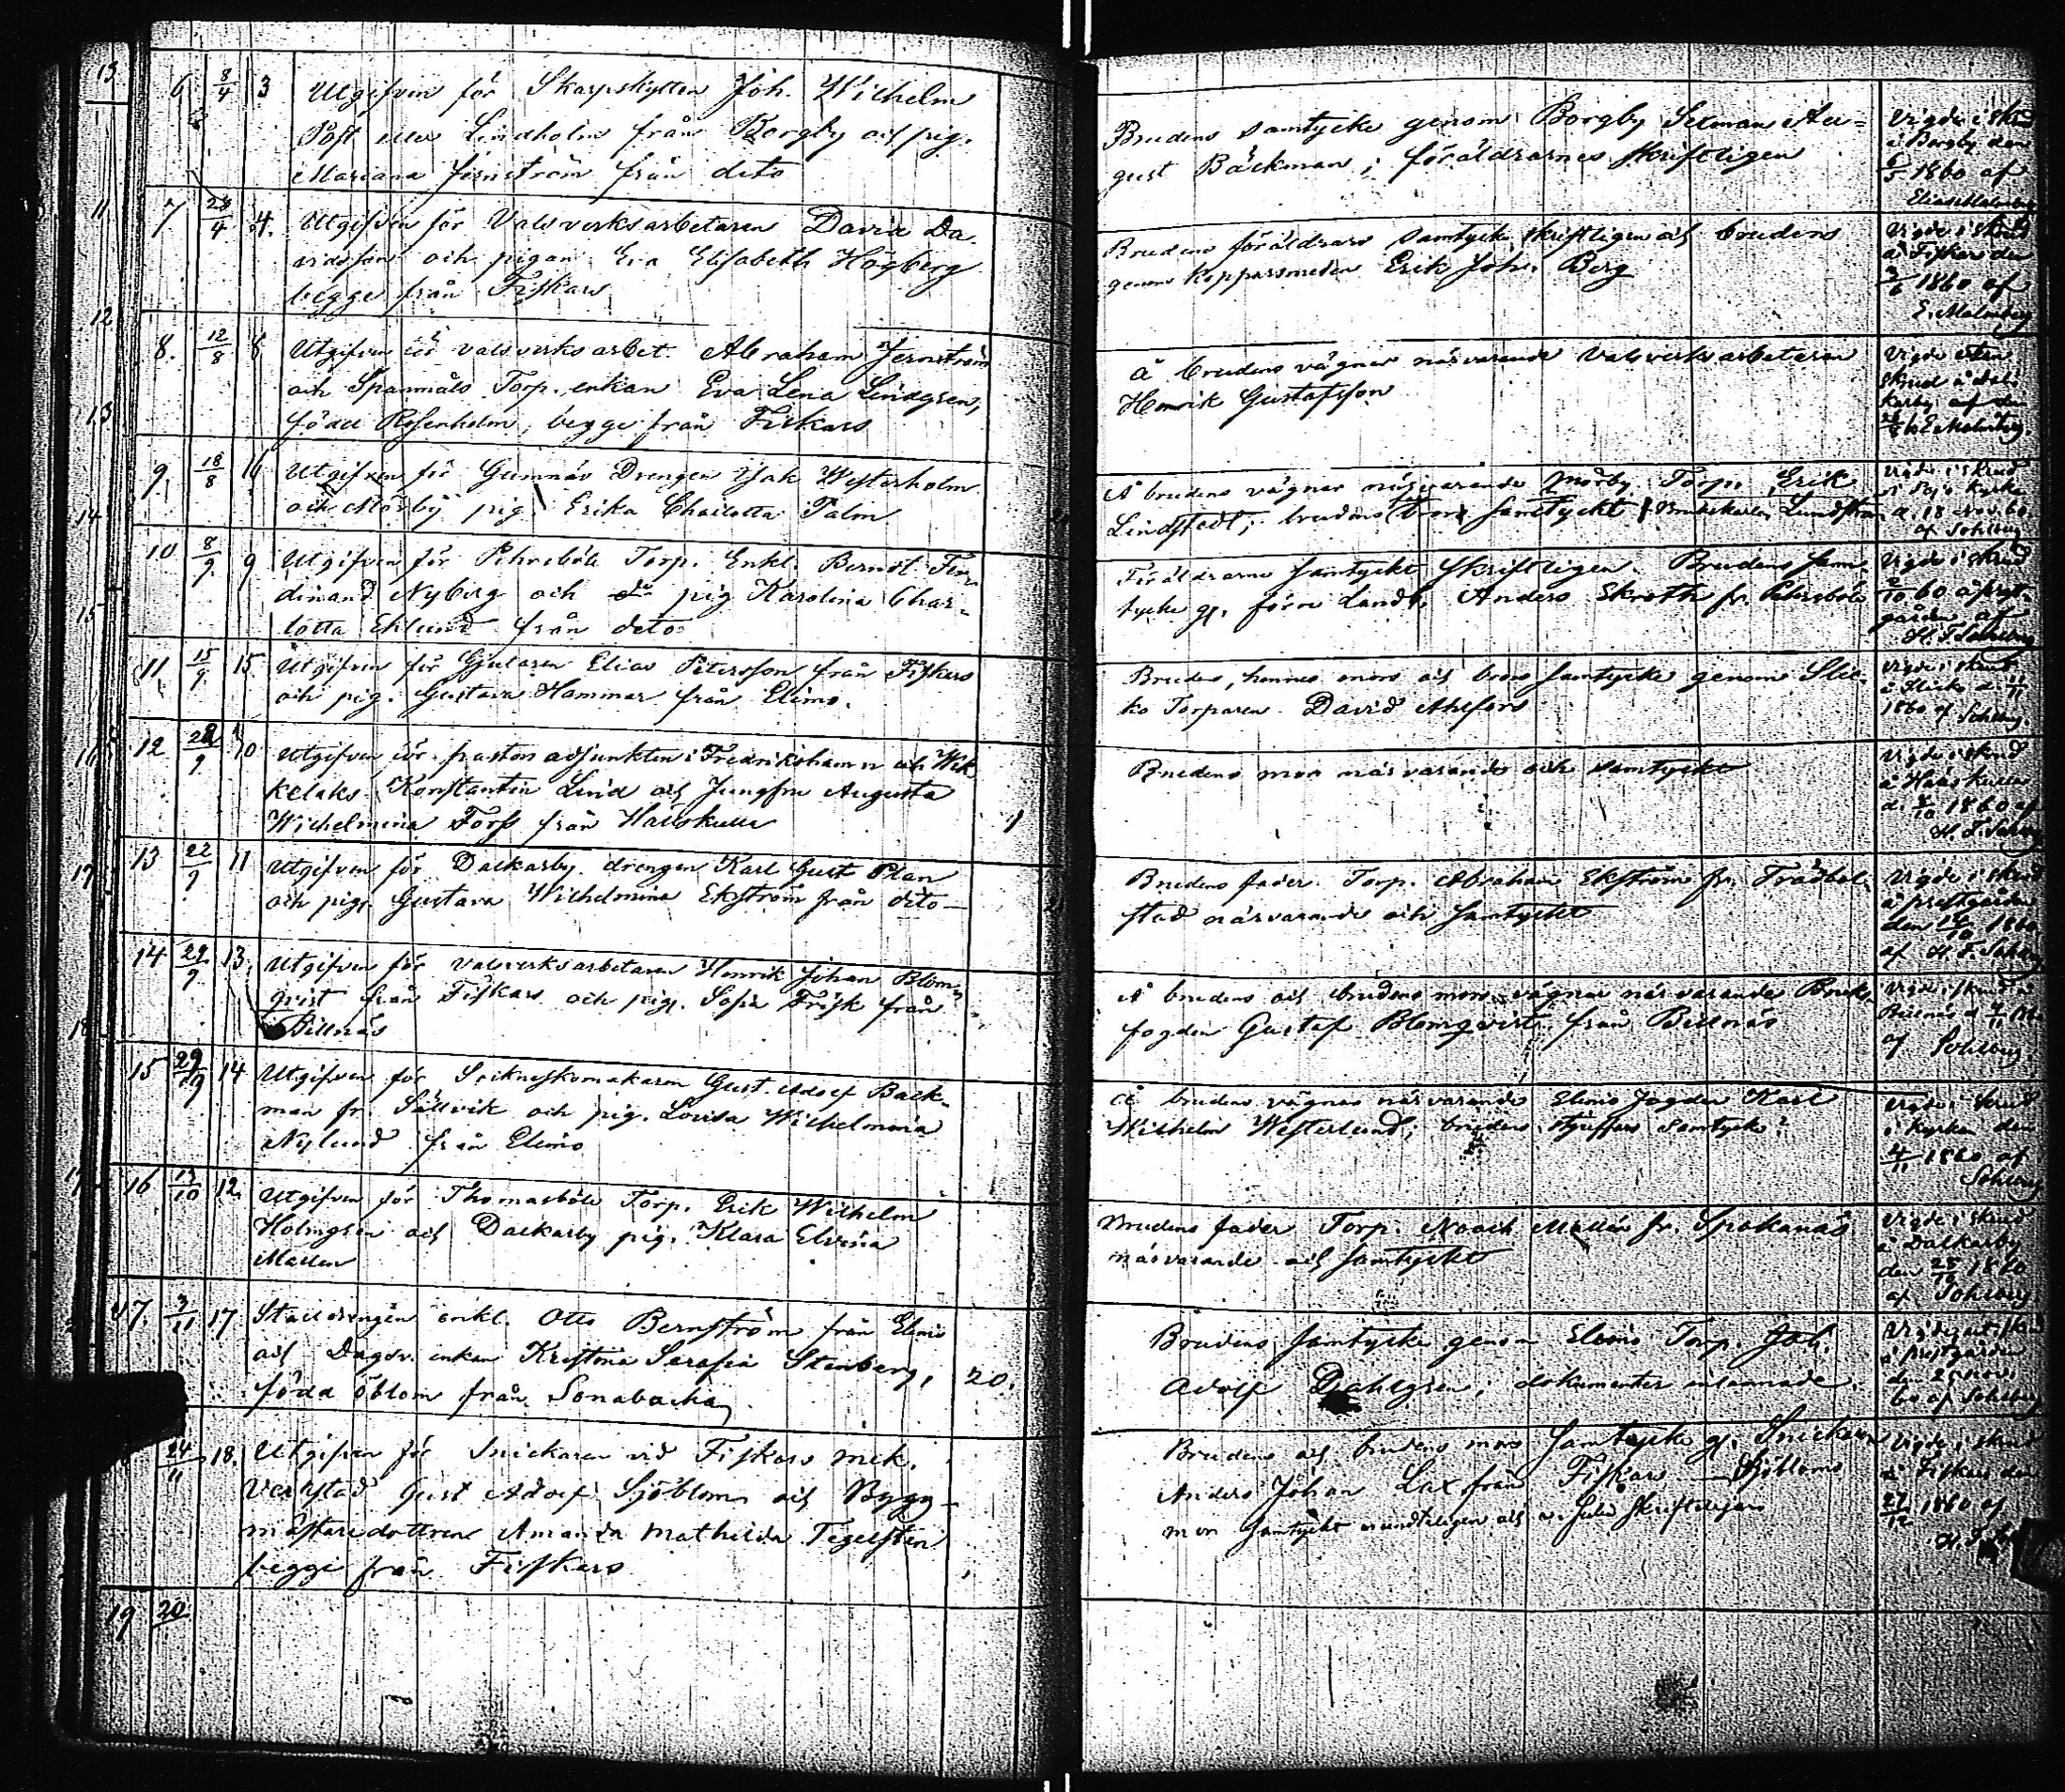 6 8/4 3 Utgifven för Skarpskytten Joh. Wilhelm
Post eller Lindholm från Borgby och pig.
Mariana Jernström från dito
Brudens samtycke genom Borgby Au-
gust Bäckman; föräldrarnes skriftligen
Vigde i skrud
å Borgby den
6/5 1860 af
Elias Malmberg
7 28/4 4. Utgifven för Valsverksarbetaren David Da-
vidsson och pigan Eva Elisabeth Högberg
begge från Fiskars
Brudens föräldrars samtycke skriftligen och brudens
genom Kopparsmeden Erik Joh. Berg
Vigde i skrud
å Fiskars den
3/6 1860 af
E. Malmberg
8. 12/8 Utgifven för valsverksarbet. Abraham Jernström
och Spannmåls Torp. enkan Eva Lena Lindgren,
född Rosenholm, begge från Fiskars
å brudens vägnar närvarande Valsverksarbetaren
Henrik Gustafsson
Vigde utan
skrud å
E Malmberg.
9. 18/8 16 Utgifven för Gumnäs Drengen Isak Westerholm
och Mörby pig. Erika Charlotta Palm
Å brudens vägnar närvarande Mörby Torp. Erik
Lindstedt; brudens bror samtyckt
Vigde i skrud
i Pojo kyrka
d. 18 nov. 60.
af Sohlberg
10 8/9 9 Utgifven för Pehrsböle Torp. Enkl. Berndt Fer-
dinand Nyberg och pig Karolina Char-
lotta Ehlund från dito
Föräldrarne samtyckt skriftligen. Brudens sam-
tycke gj. förre Landb. Anders Skroth fr. Pehrsböle
Vigde i skrud
2/10 60 å prest-
gården af
H. F. Sohlberg
11 15/9 15. Utgifven för Gjutaren Elias Petersson från Fiskars
och pig. Gustava Hammar från Elimo.
Brudens, hennes mors och brors samtycke genom Slic-
ko Torparen David Ahlfors
Vigde i skrud
å Slicko d. 11/11
1860 af Sohlberg
12 22/9 10 Utgifven för pastors adjunkten i Fredrikshamn och Wek
kelaks Konstantin Lind och Jungfru Augusta
Wilhelmina Forss från Hällskulla
Brudens mor närvarande och samtyckt
Vigde i skrud
1860 af
13 22/9 11 Utgifven för Dalkarby drengen Karl Gust Plan
och pig. Gustava Wilhelmina Ekström från dito
Brudens fader Torp. Abraham Ekström fr. Trädbol-
stad närvarande och samtyckt
Vigde i skrud
å prestgården
den 14/10 1860
af H. F. Sohlberg
14 29/9 13. Utgifven för valsverksarbetaren Henrik Johan Blom-
qvist från Fiskars och pig. Sofia Frisk från
Billnäs
Å brudens och brudens mors vägnar närvarande Bruks-
fogden Gustaf Blomqvist från Billnäs
Vigde i skrud å
Billnäs d 4/11
af Sohlberg
15 29/9 14 Utgifven för Sockneskomakaren Gust. Adolf Back-
man fr. Sällvik och pig. Lovisa Wilhelmina
Nylund från Elimo
Å brudens vägnar närvarande Elimo Fogden Karl
Wilhelm Westerlund; brudens styffars samtycke?
Vigde i skrud
i kyrkan den
4/11 1860 af
Sohlberg
16 13/10 12. Utgifven för Thomasböle Torp. Erik Wilhelm
Holmgren och Dalkarby pig. Klara Elvira
Mallen
Brudens fader Torp. Noach Mallén fr. Spakanäs
närvarande och samtyckt
Vigde i skrud
å Dalkarby
den 28/10 1860
af Sohlberg
17. 3/11 17 Stalldrengen enkl. Otto Bernström från Elimo
och Dagsv. enkan Kristina Serafia Stenberg,
född Öblom från Sonabacka
20.
Brudens samtycke genom Elimo Torp. Joh.
Adolf Dahlgren; dokumenter inlemnade.
å prestgården
den 25 nov.
60 af Sohlberg
24/11 18. Utgifven för Snickaren vid Fiskars mek.
Verkstad Gust Adolf Sjöblom och Bygg-
mästaredottren Amanda Mathilda Tegelsten
begge från Fiskars
Brudens och brudens mors samtycke gj. Snickaren
Anders Johan Lax från Fiskars — Sjöbloms
mor samtyckt mundteligen och skriftligen
Vigde i skrud
å Fiskars den
27/12 1860 af
19 20